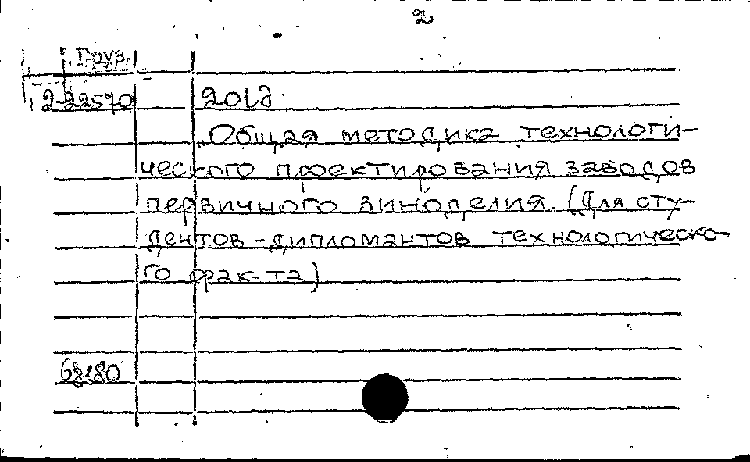 2
Груз.
2-22570
Общая методика технологи-
ческого проектирования заводов
первичного виноделия. (Для сту-
дентов-дипломантов технологическо-
го фак-та)
68180